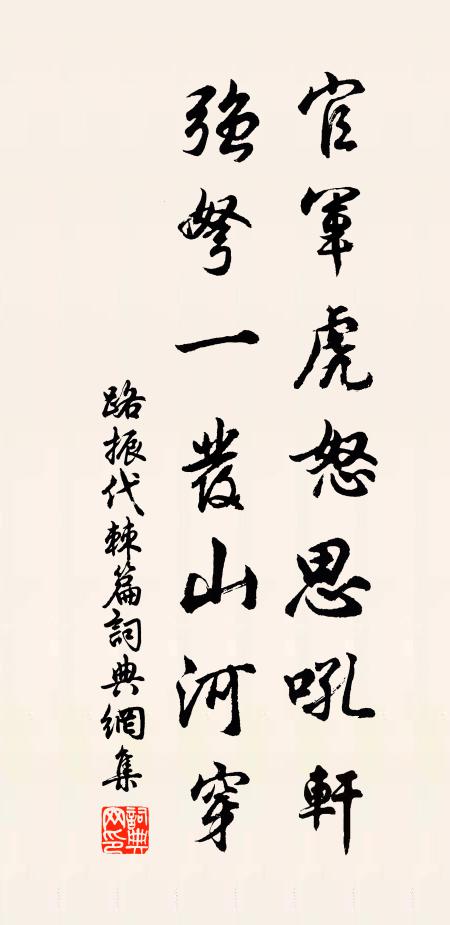 官軍虎怒思吼軒
強弩一發山河穿
路振代棘篇詞典網集
詞典網印